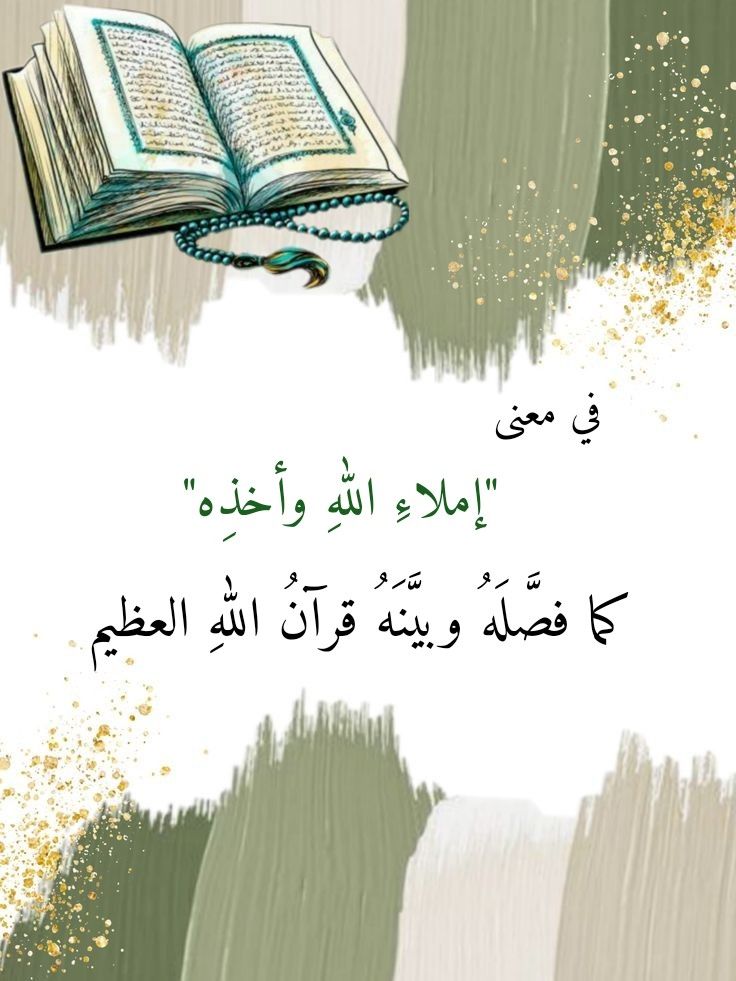 في معنى
"إملاءِ اللهِ وأخذِه"
كما فصَّلَهُ وبيَّنَهُ قرآنُ اللهِ العظيم